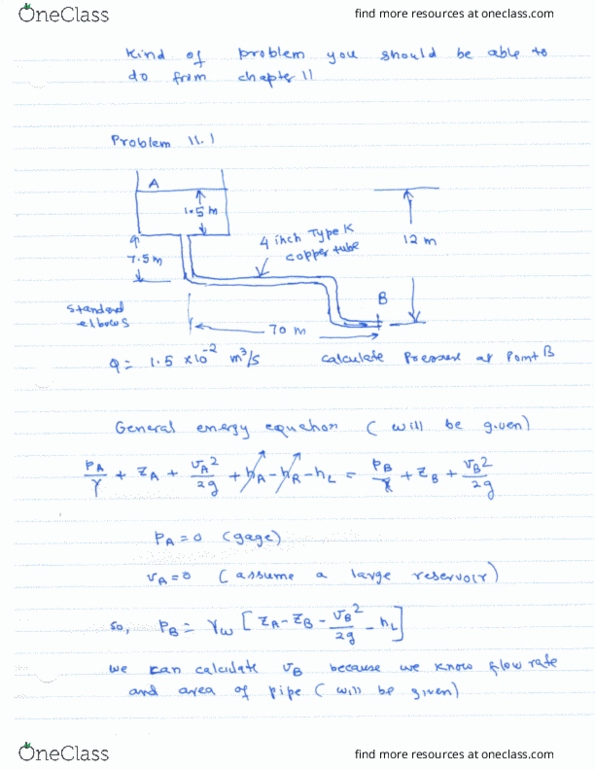 OneClass
find more resources at oneclass.com
Kind of problem you should be able to
do from chapter 11
Problem 11.1
A
1.5 m
7.5 m
4 inch Type K
copper tube
12 m
B
Standard
elbows
70 m
Q = 1.5 x10⁻² m³/s calculate Pressure at Point B
General energy equation ( will be given)
p_A/γ + z_A + v_A²/2g + h_A - h_R - h_L = p_B/γ + z_B + v_B²/2g
p_A = 0 (gage)
v_A = 0 (assume a large reservoir)
so, p_B = γ_w [ z_A - z_B - v_B²/2g - h_L ]
we can calculate v_B because we know flow rate
and area of pipe ( will be given)
OneClass
find more resources at oneclass.com